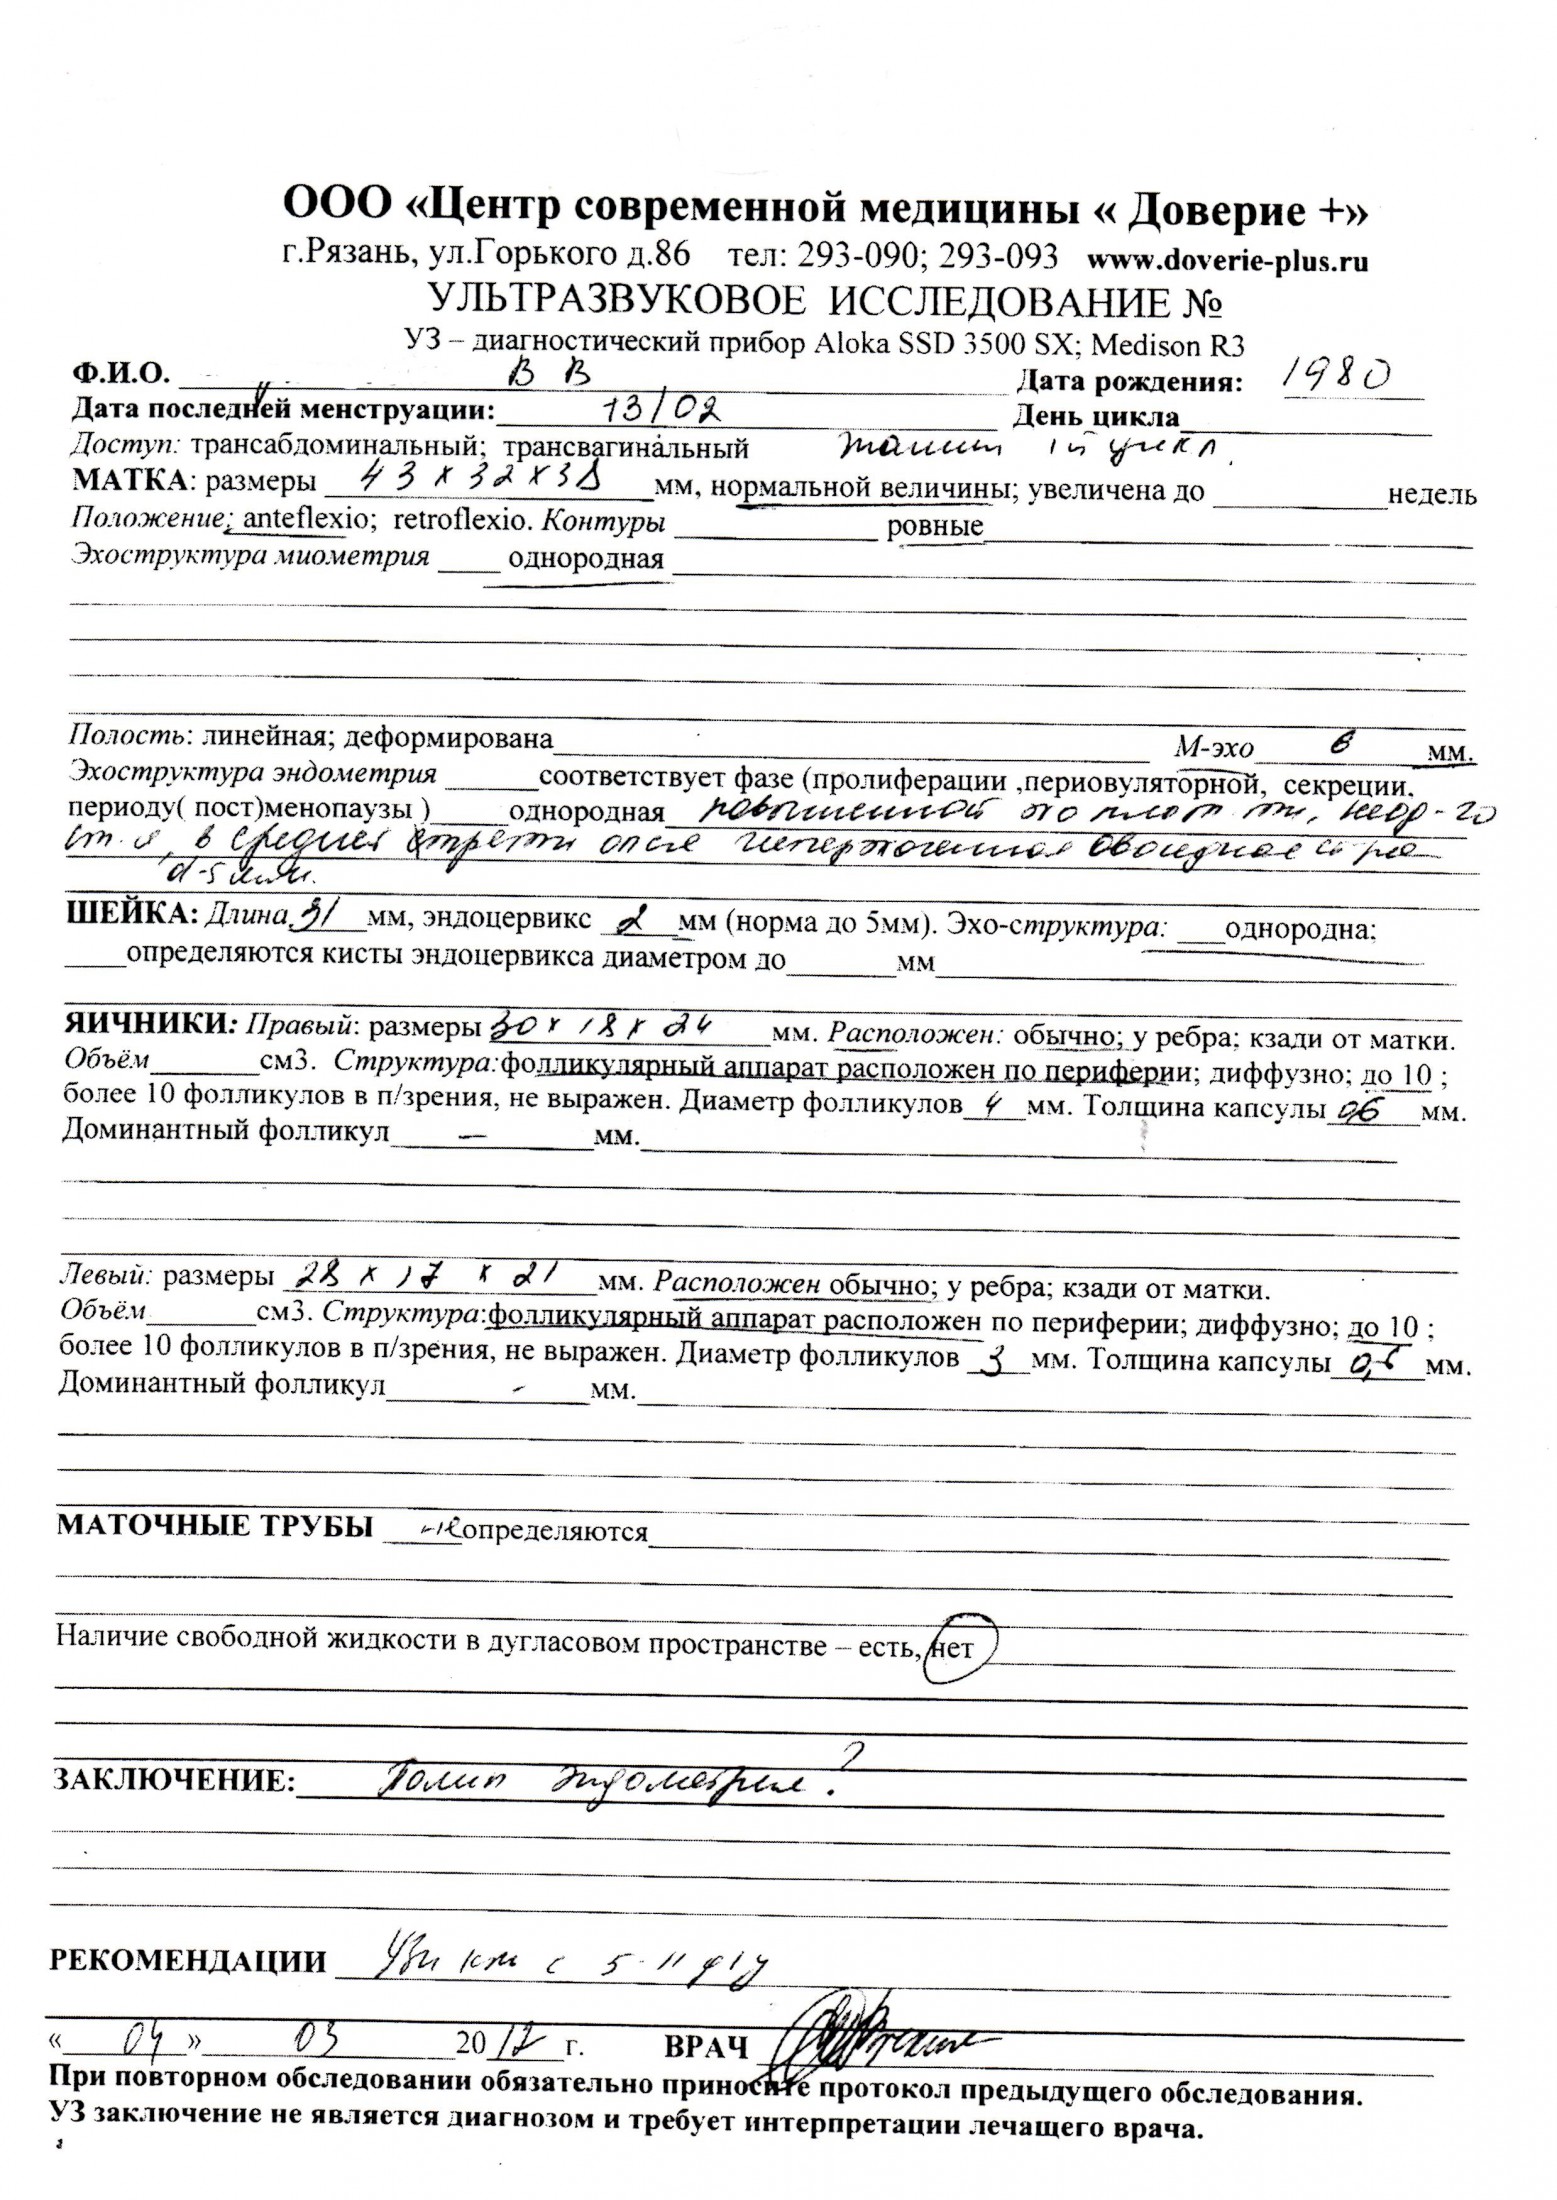 ООО «Центр современной медицины « Доверие +»
г.Рязань, ул.Горького д.86 тел: 293-090; 293-093 www.doverie-plus.ru
УЛЬТРАЗВУКОВОЕ ИССЛЕДОВАНИЕ №
УЗ – диагностический прибор Aloka SSD 3500 SX; Medison R3
Ф.И.О. В В Дата рождения: 1980
Дата последней менструации: 13/02 День цикла
Доступ: трансабдоминальный; трансвагинальный
МАТКА: размеры 43 х 32 х 38 мм, нормальной величины; увеличена до недель
Положение; anteflexio; retroflexio. Контуры ровные
Эхоструктура миометрия однородная
Полость: линейная; деформирована М-эхо 6 мм.
Эхоструктура эндометрия соответствует фазе (пролиферации ,периовуляторной, секреции.
периоду( пост)менопаузы ) однородная повышенной
в средней трети
d-5 мм.
ШЕЙКА: Длина 31 мм, эндоцервикс 2 мм (норма до 5мм). Эхо-структура: однородна;
определяются кисты эндоцервикса диаметром до мм
ЯИЧНИКИ: Правый: размеры 30 х 18 х 24 мм. Расположен: обычно; у ребра; кзади от матки.
Объём см3. Структура:фолликулярный аппарат расположен по периферии; диффузно; до 10 ;
более 10 фолликулов в п/зрения, не выражен. Диаметр фолликулов 4 мм. Толщина капсулы 06 мм.
Доминантный фолликул – мм.
Левый: размеры 28 х 17 х 21 мм. Расположен обычно; у ребра; кзади от матки.
Объём см3. Структура:фолликулярный аппарат расположен по периферии; диффузно; до 10 ;
более 10 фолликулов в п/зрения, не выражен. Диаметр фолликулов 3 мм. Толщина капсулы мм.
Доминантный фолликул - мм.
МАТОЧНЫЕ ТРУБЫ не определяются
Наличие свободной жидкости в дугласовом пространстве – есть, нет
ЗАКЛЮЧЕНИЕ: Полип эндометрия?
РЕКОМЕНДАЦИИ Узи с 5-
« 04 » 03 2012 г. ВРАЧ
При повторном обследовании обязательно приносите протокол предыдущего обследования.
УЗ заключение не является диагнозом и требует интерпретации лечащего врача.